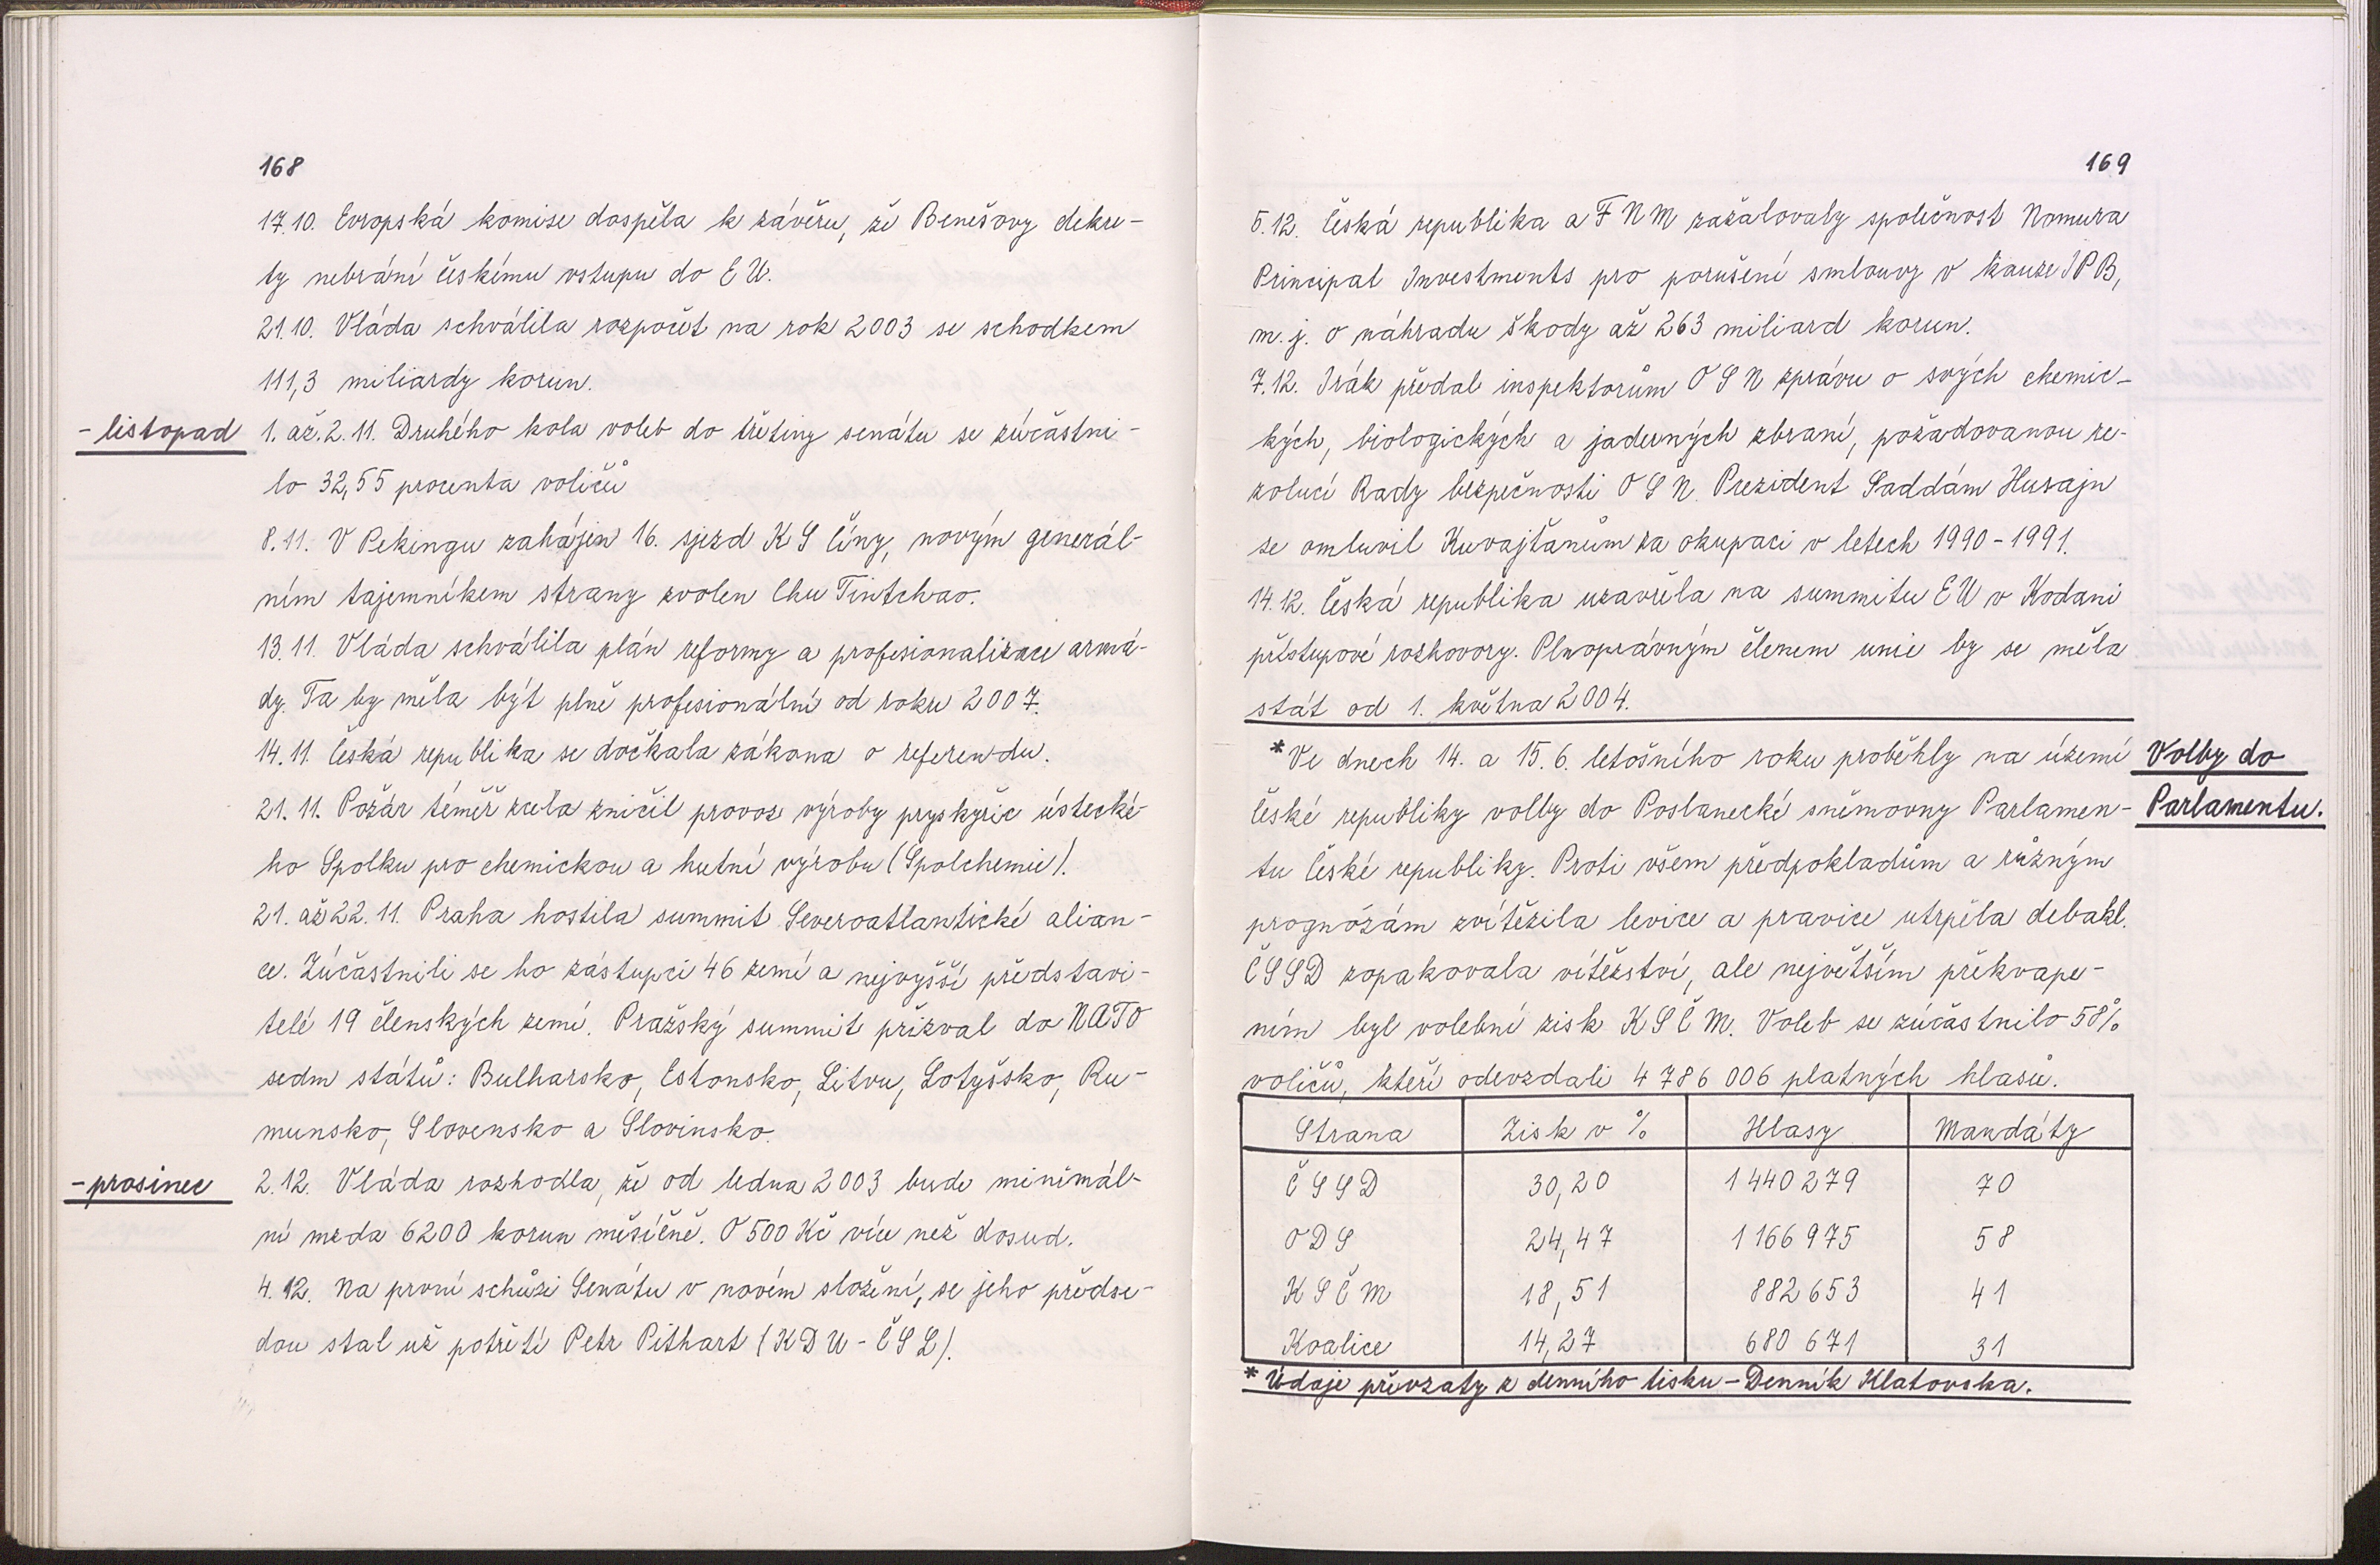 168
17.10. Evropská komise dospěla k závěru, že Benešovy dekre-
ty nebrání českému vstupu do EU.
21.10. Vláda schválila rozpočet na rok 2003 se schodkem
111,3 miliardy korun.
- listopad 1. až 2.11. Druhého kola voleb do třetiny senátu se zúčastni-
lo 32,55 procenta voličů
8.11. V Pekingu zahájen 16. sjezd KS Číny, novým generál-
ním tajemníkem strany zvolen Chu Tintchao.
13.11. Vláda schválila plán reformy a profesionalizace armá-
dy. Ta by měla být plně profesionální od roku 2007.
14.11. Česká republika se dočkala zákona o referendu.
21.11. Požár téměř zcela zničil provoz výroby pryskyřic ústecké-
ho Spolku pro chemickou a hutní výrobu (Spolchemie).
21. až 22.11. Praha hostila summit Severoatlantické alian-
ce. Zúčastnili se ho zástupci 46 zemí a nejvyšší představi-
telé 19 členských zemí. Pražský summit přizval do NATO
sedm států: Bulharsko, Estonsko, Litvu, Lotyšsko, Ru-
munsko, Slovensko a Slovinsko.
- prosinec 2.12. Vláda rozhodla, že od ledna 2003 bude minimál-
ní mzda 6200 korun měsíčně. O 500 Kč více než dosud.
4.12. Na první schůzi Senátu v novém složení, se jeho předse-
dou stal už potřetí Petr Pithart (KDU-ČSL).
169
5.12. Česká republika a FNM zažalovaly společnost Nomura
Principal Investments pro porušení smlouvy v kauze IPB,
m.j. o náhradu škody až 263 miliard korun.
7.12. Irák předal inspektorům OSN zprávu o svých chemic-
kých, biologických a jaderných zbraní, požadovanou re-
zolucí Rady bezpečnosti OSN. Prezident Saddám Husajn
se omluvil Kuvajťanům za okupaci v letech 1990-1991.
14.12. Česká republika uzavřela na summitu EU v Kodani
přístupové rozhovory. Plnoprávným členem unie by se měla
stát od 1. května 2004.
*Ve dnech 14. a 15.6. letošního roku proběhly na území Volby do
České republiky volby do Poslanecké sněmovny Parlamen- Parlamentu.
tu České republiky. Proti všem předpokladům a různým
prognózám zvítězila levice a pravice utrpěla debakl.
ČSSD zopakovala vítězství, ale největším překvape-
ním byl volební zisk KSČM. Voleb se zúčastnilo 58%
voličů, kteří odevzdali 4 786 006 platných hlasů.
Strana Zisk v % Hlasy Mandáty
ČSSD 30,20 1 440 279 70
ODS 24,47 1 166 975 58
KSČM 18,51 882 653 41
Koalice 14,27 680 671 31
* Údaje převzaty z denního tisku - Denník Klatovska.